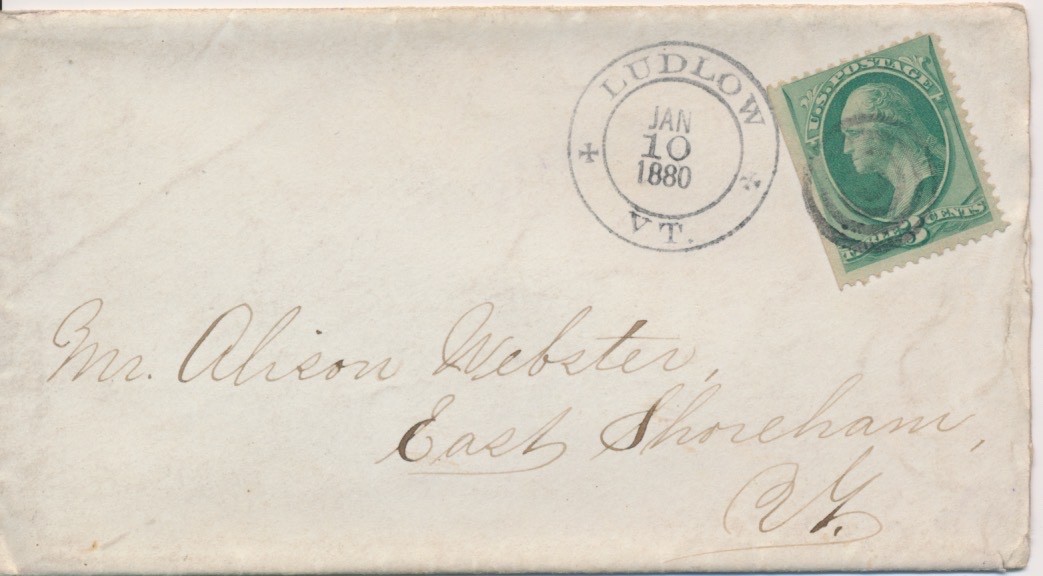 LUDLOW
JAN
10
1880
VT.
U.S. POSTAGE
3 CENTS
Mr. Alison Webster,
East Shoreham,
Vt.